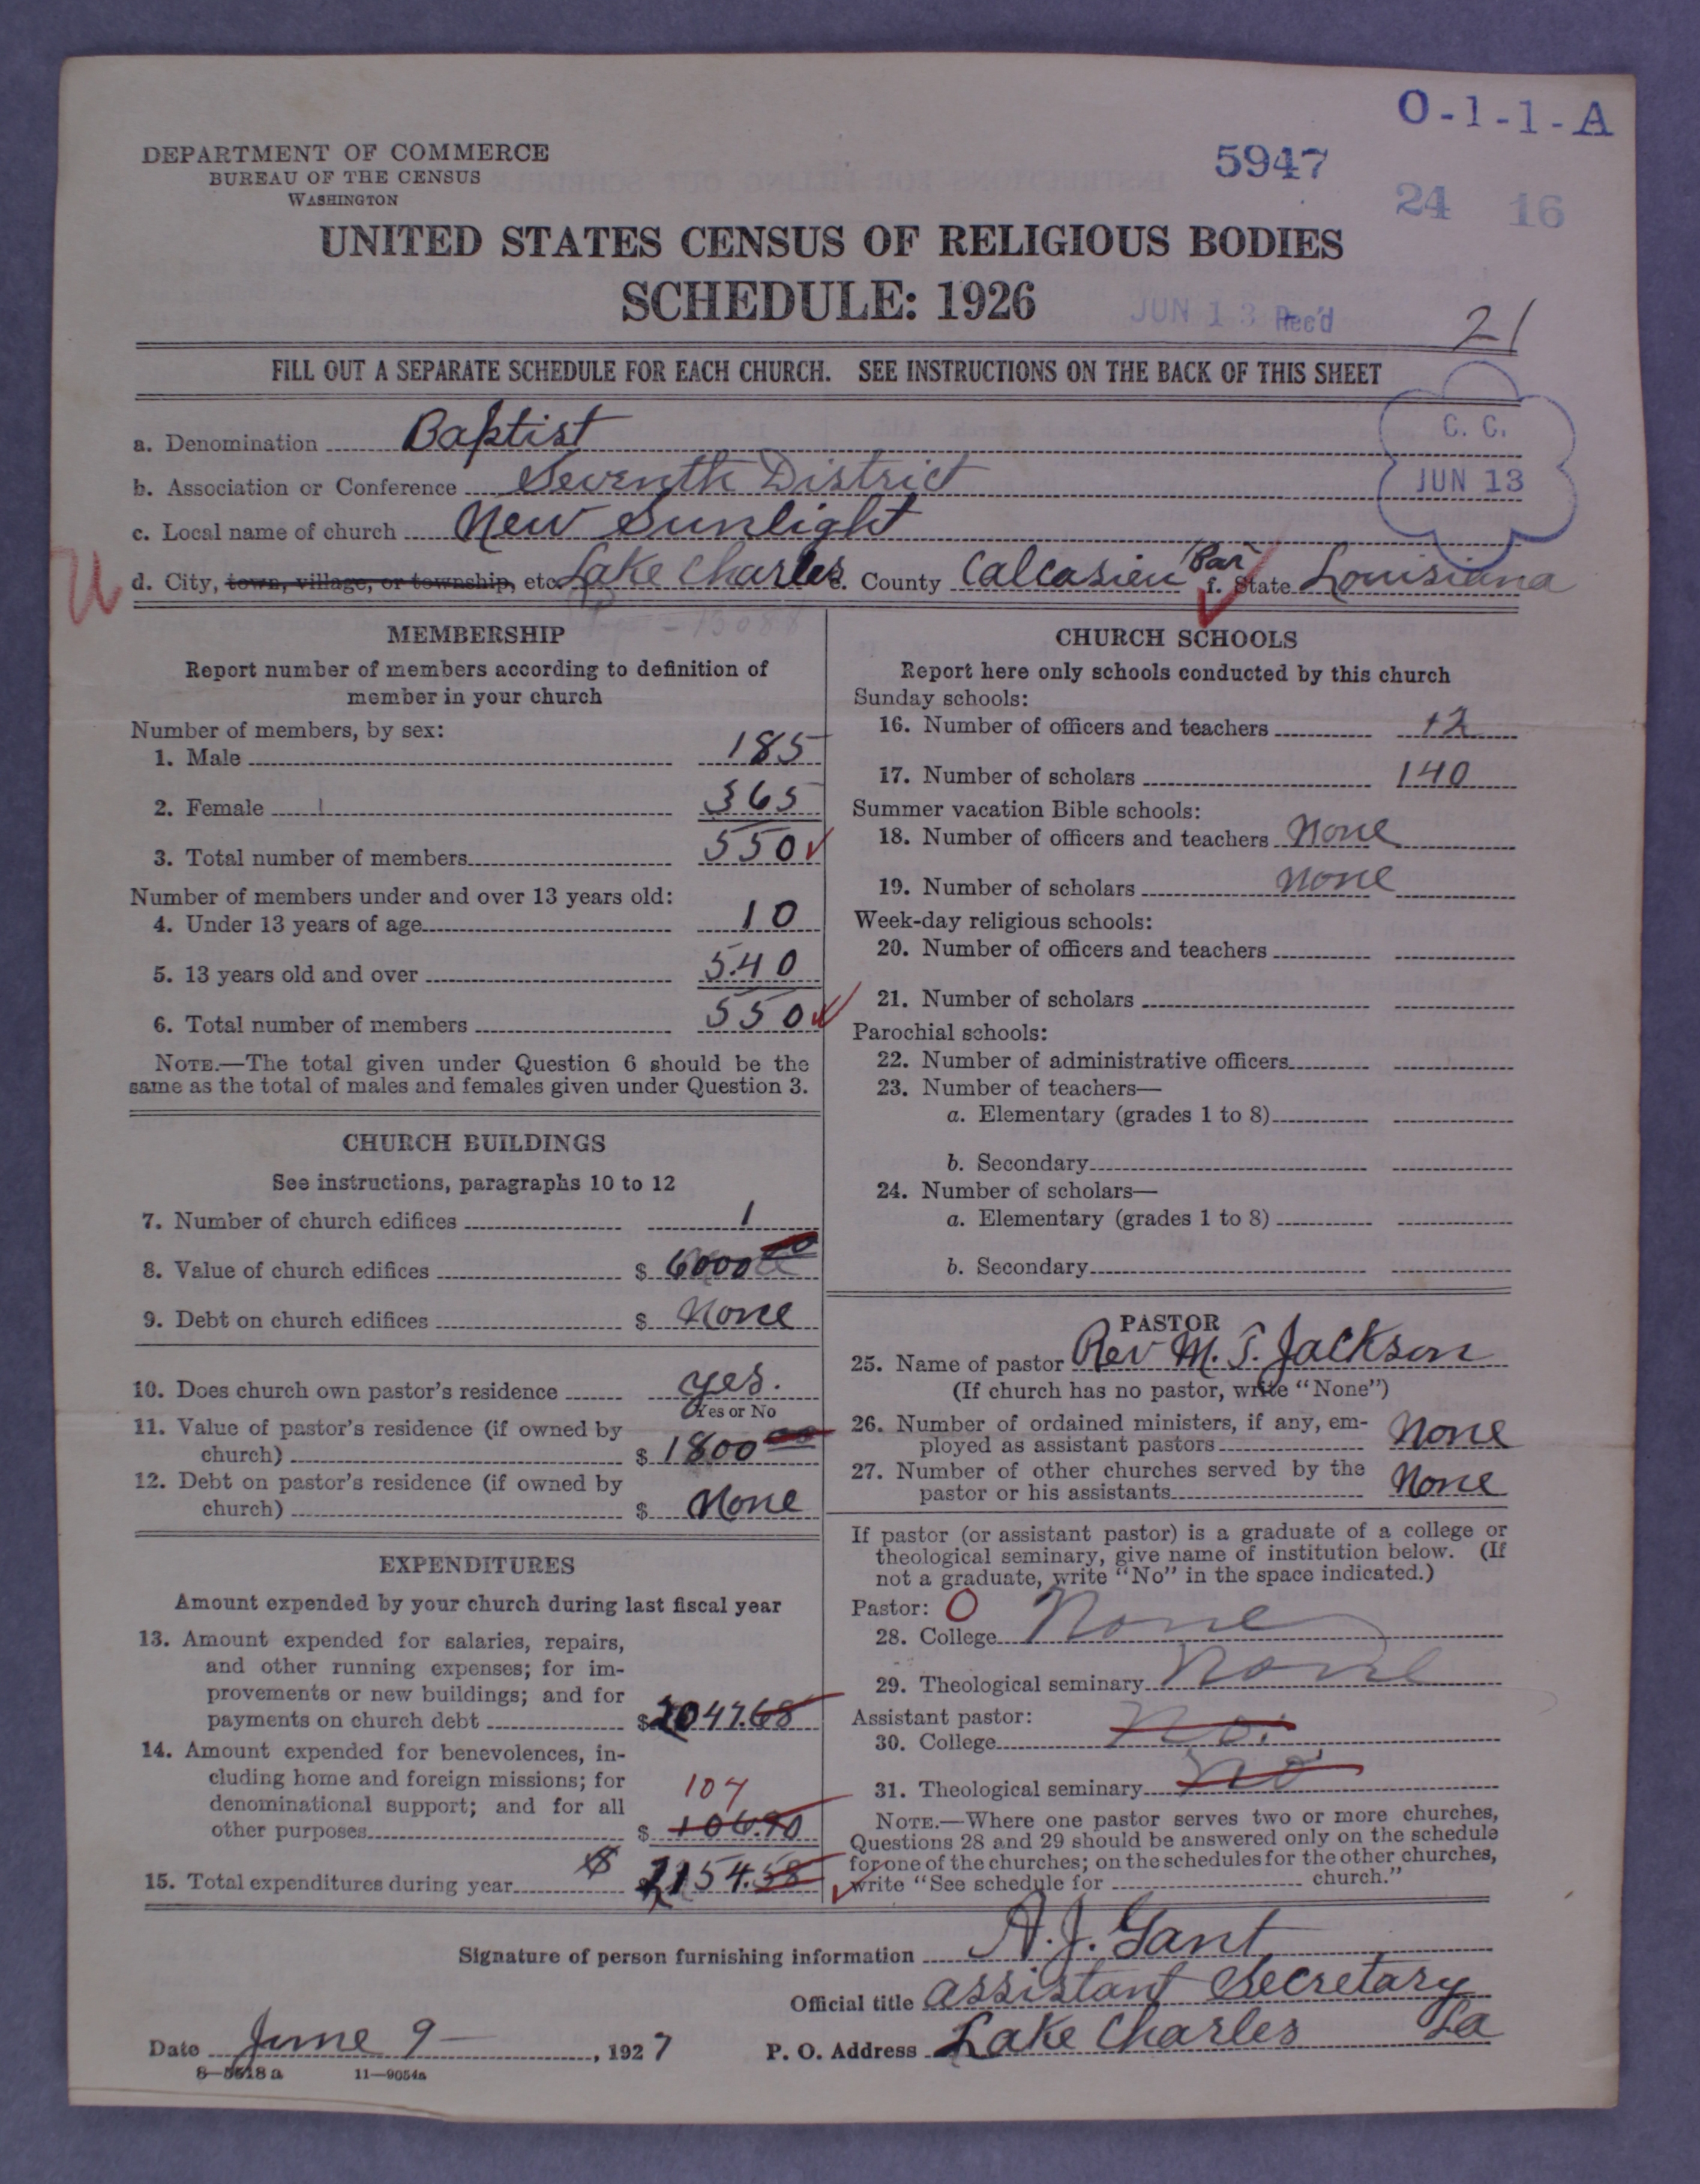 O-1-1-A
DEPARTMENT OF COMMERCE
BUREAU OF THE CENSUS
WASHINGTON
5947
24 16
UNITED STATES CENSUS OF RELIGIOUS BODIES
SCHEDULE: 1926
JUN 13 Rec'd
21
FILL OUT A SEPARATE SCHEDULE FOR EACH CHURCH. SEE INSTRUCTIONS ON THE BACK OF THIS SHEET
C. C.
JUN 13
a. Denomination Baptist
b. Association or Conference Seventh District
c. Local name of church New Sunlight
d. City, town, village, or township, etc. Lake Charles e. County Calcasieu Par f. State Louisiana
MEMBERSHIP
Report number of members according to definition of
member in your church
Number of members, by sex:
1. Male 185
2. Female 365
3. Total number of members 550
Number of members under and over 13 years old:
4. Under 13 years of age 10
5. 13 years old and over 540
6. Total number of members 550
NOTE.—The total given under Question 6 should be the
same as the total of males and females given under Question 3.
CHURCH BUILDINGS
See instructions, paragraphs 10 to 12
7. Number of church edifices 1
8. Value of church edifices $ 6000
9. Debt on church edifices $ None
10. Does church own pastor's residence yes.
Yes or No
11. Value of pastor's residence (if owned by
church) $ 1800 00
12. Debt on pastor's residence (if owned by
church) $ None
EXPENDITURES
Amount expended by your church during last fiscal year
13. Amount expended for salaries, repairs,
and other running expenses; for im-
provements or new buildings; and for
payments on church debt $ 2047.68
14. Amount expended for benevolences, in-
cluding home and foreign missions; for
denominational support; and for all
107
other purposes $ 106.90
15. Total expenditures during year $ 2154.58
CHURCH SCHOOLS
Report here only schools conducted by this church
Sunday schools:
16. Number of officers and teachers 12
17. Number of scholars 140
Summer vacation Bible schools:
18. Number of officers and teachers None
19. Number of scholars None
Week-day religious schools:
20. Number of officers and teachers
21. Number of scholars
Parochial schools:
22. Number of administrative officers
23. Number of teachers—
a. Elementary (grades 1 to 8)
b. Secondary
24. Number of scholars—
a. Elementary (grades 1 to 8)
b. Secondary
PASTOR
25. Name of pastor Rev M. S. Jackson
(If church has no pastor, write "None")
26. Number of ordained ministers, if any, em-
ployed as assistant pastors None
27. Number of other churches served by the
pastor or his assistants None
If pastor (or assistant pastor) is a graduate of a college or
theological seminary, give name of institution below. (If
not a graduate, write "No" in the space indicated.)
Pastor: O
28. College None
29. Theological seminary None
Assistant pastor:
30. College No.
31. Theological seminary No
NOTE.—Where one pastor serves two or more churches,
Questions 28 and 29 should be answered only on the schedule
for one of the churches; on the schedules for the other churches,
write "See schedule for church."
Signature of person furnishing information A. J. Gant
Official title assistant Secretary
Date June 9 , 1927 P. O. Address Lake Charles La
8—5618 a 11—9054a